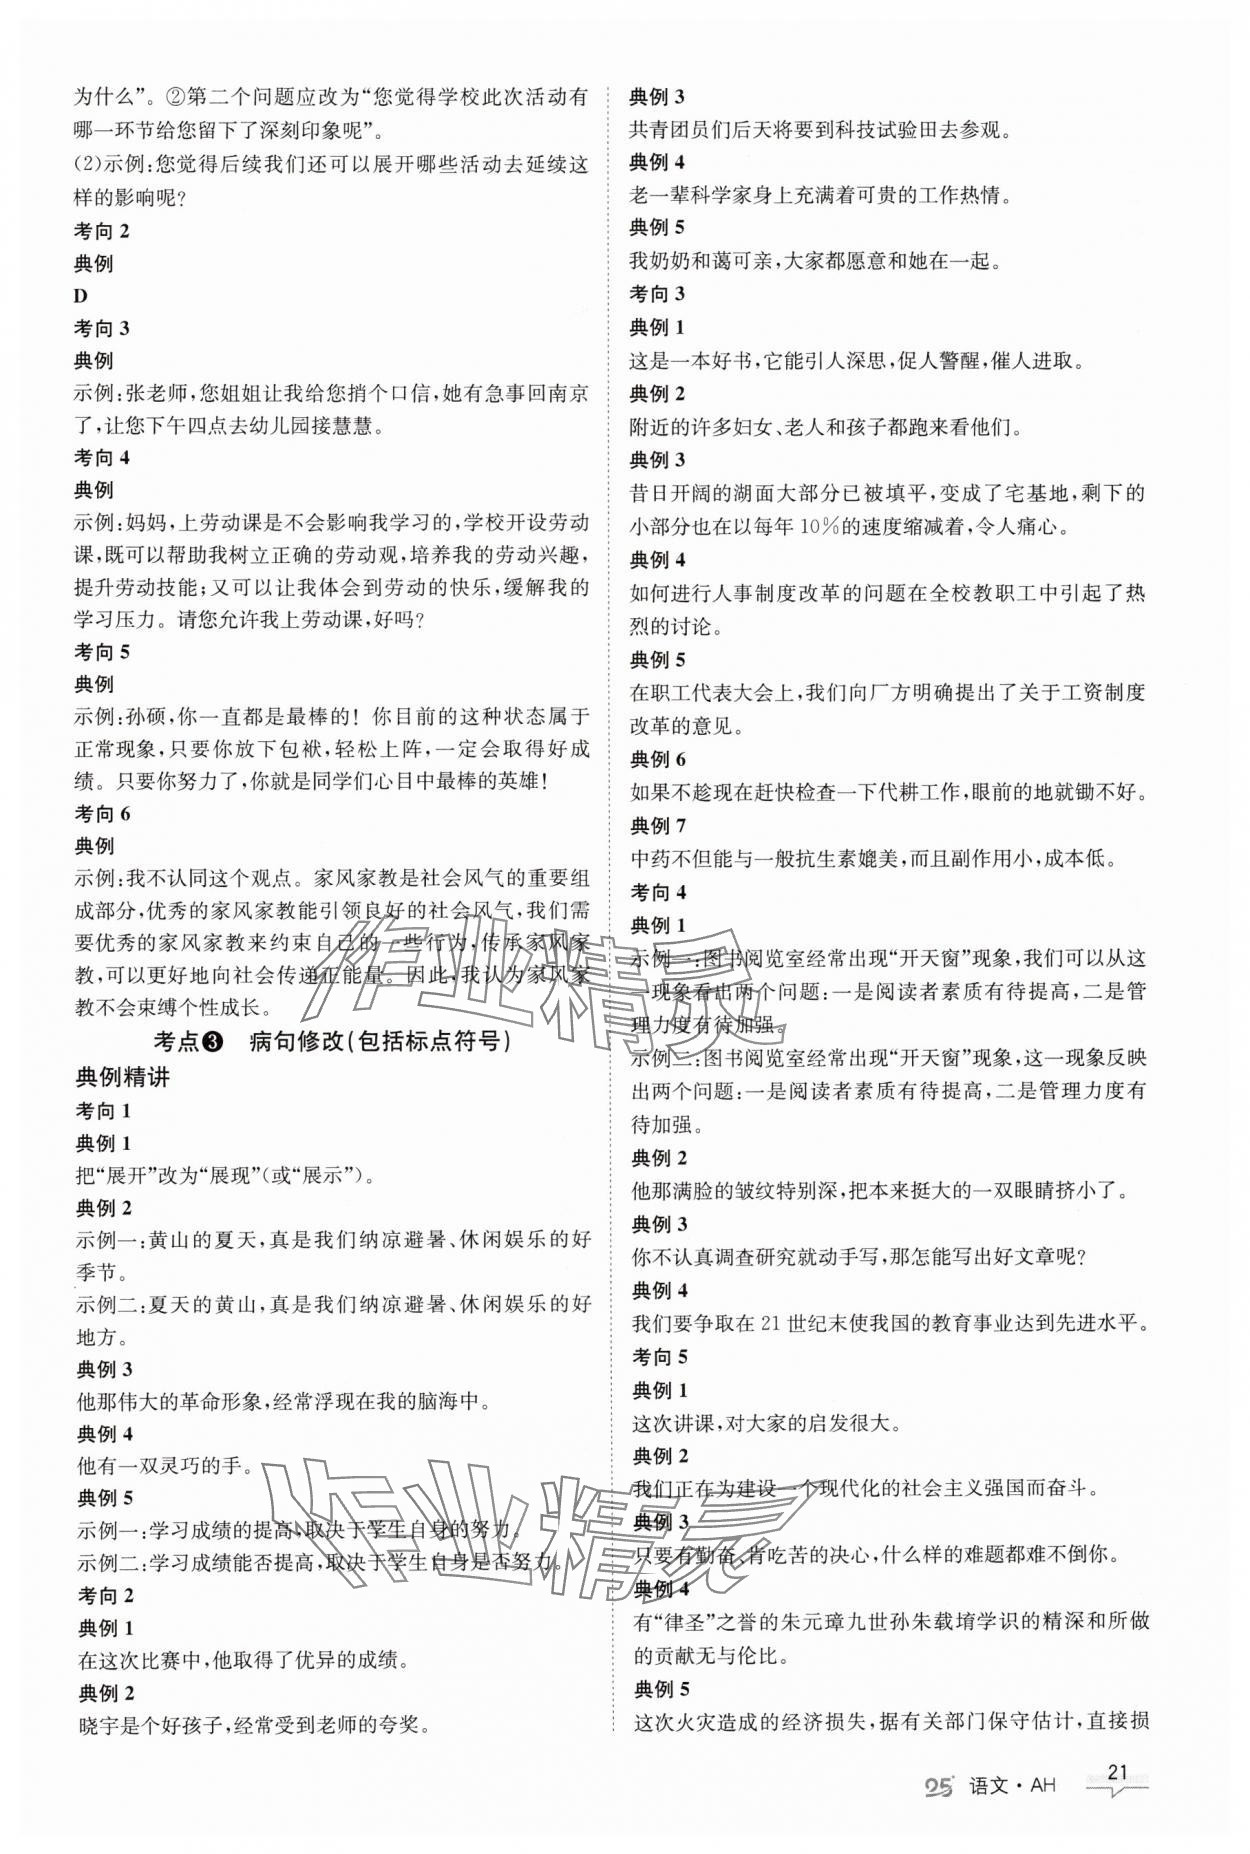 为什么”。②第二个问题应改为“您觉得学校此次活动有
哪一环节给您留下了深刻印象呢”。
(2)示例:您觉得后续我们还可以展开哪些活动去延续这
样的影响呢?
考向 2
典例
D
考向 3
典例
示例:张老师,您姐姐让我给您捎个口信,她有急事回南京
了,让您下午四点去幼儿园接慧慧。
考向 4
典例
示例:妈妈,上劳动课是不会影响我学习的,学校开设劳动
课,既可以帮助我树立正确的劳动观,培养我的劳动兴趣,
提升劳动技能;又可以让我体会到劳动的快乐,缓解我的
学习压力。请您允许我上劳动课,好吗?
考向 5
典例
示例:孙硕,你一直都是最棒的! 你目前的这种状态属于
正常现象,只要你放下包袱,轻松上阵,一定会取得好成
绩。只要你努力了,你就是同学们心目中最棒的英雄!
考向 6
典例
示例:我不认同这个观点。家风家教是社会风气的重要组
成部分,优秀的家风家教能引领良好的社会风气,我们需
要优秀的家风家教来约束自己的一些行为,传承家风家
教,可以更好地向社会传递正能量。因此,我认为家风家
教不会束缚个性成长。
考点❸ 病句修改(包括标点符号)
典例精讲
考向 1
典例 1
把“展开”改为“展现”(或“展示”)。
典例 2
示例一:黄山的夏天,真是我们纳凉避暑、休闲娱乐的好
季节。
示例二:夏天的黄山,真是我们纳凉避暑、休闲娱乐的好
地方。
典例 3
他那伟大的革命形象,经常浮现在我的脑海中。
典例 4
他有一双灵巧的手。
典例 5
示例一:学习成绩的提高,取决于学生自身的努力。
示例二:学习成绩能否提高,取决于学生自身是否努力。
考向 2
典例 1
在这次比赛中,他取得了优异的成绩。
典例 2
晓宇是个好孩子,经常受到老师的夸奖。
典例 3
共青团员们后天将要到科技试验田去参观。
典例 4
老一辈科学家身上充满着可贵的工作热情。
典例 5
我奶奶和蔼可亲,大家都愿意和她在一起。
考向 3
典例 1
这是一本好书,它能引人深思,促人警醒,催人进取。
典例 2
附近的许多妇女、老人和孩子都跑来看他们。
典例 3
昔日开阔的湖面大部分已被填平,变成了宅基地,剩下的
小部分也在以每年 10%的速度缩减着,令人痛心。
典例 4
如何进行人事制度改革的问题在全校教职工中引起了热
烈的讨论。
典例 5
在职工代表大会上,我们向厂方明确提出了关于工资制度
改革的意见。
典例 6
如果不趁现在赶快检查一下代耕工作,眼前的地就锄不好。
典例 7
中药不但能与一般抗生素媲美,而且副作用小,成本低。
考向 4
典例 1
示例一:图书阅览室经常出现“开天窗”现象,我们可以从这
一现象看出两个问题:一是阅读者素质有待提高,二是管
理力度有待加强。
示例二:图书阅览室经常出现“开天窗”现象,这一现象反映
出两个问题:一是阅读者素质有待提高,二是管理力度有
待加强。
典例 2
他那满脸的皱纹特别深,把本来挺大的一双眼睛挤小了。
典例 3
你不认真调查研究就动手写,那怎能写出好文章呢?
典例 4
我们要争取在 21 世纪末使我国的教育事业达到先进水平。
考向 5
典例 1
这次讲课,对大家的启发很大。
典例 2
我们正在为建设一个现代化的社会主义强国而奋斗。
典例 3
只要有勤奋、肯吃苦的决心,什么样的难题都难不倒你。
典例 4
有“律圣”之誉的朱元璋九世孙朱载堉学识的精深和所做
的贡献无与伦比。
典例 5
这次火灾造成的经济损失,据有关部门保守估计,直接损
作业精灵
作业精灵
25 语文·AH 21